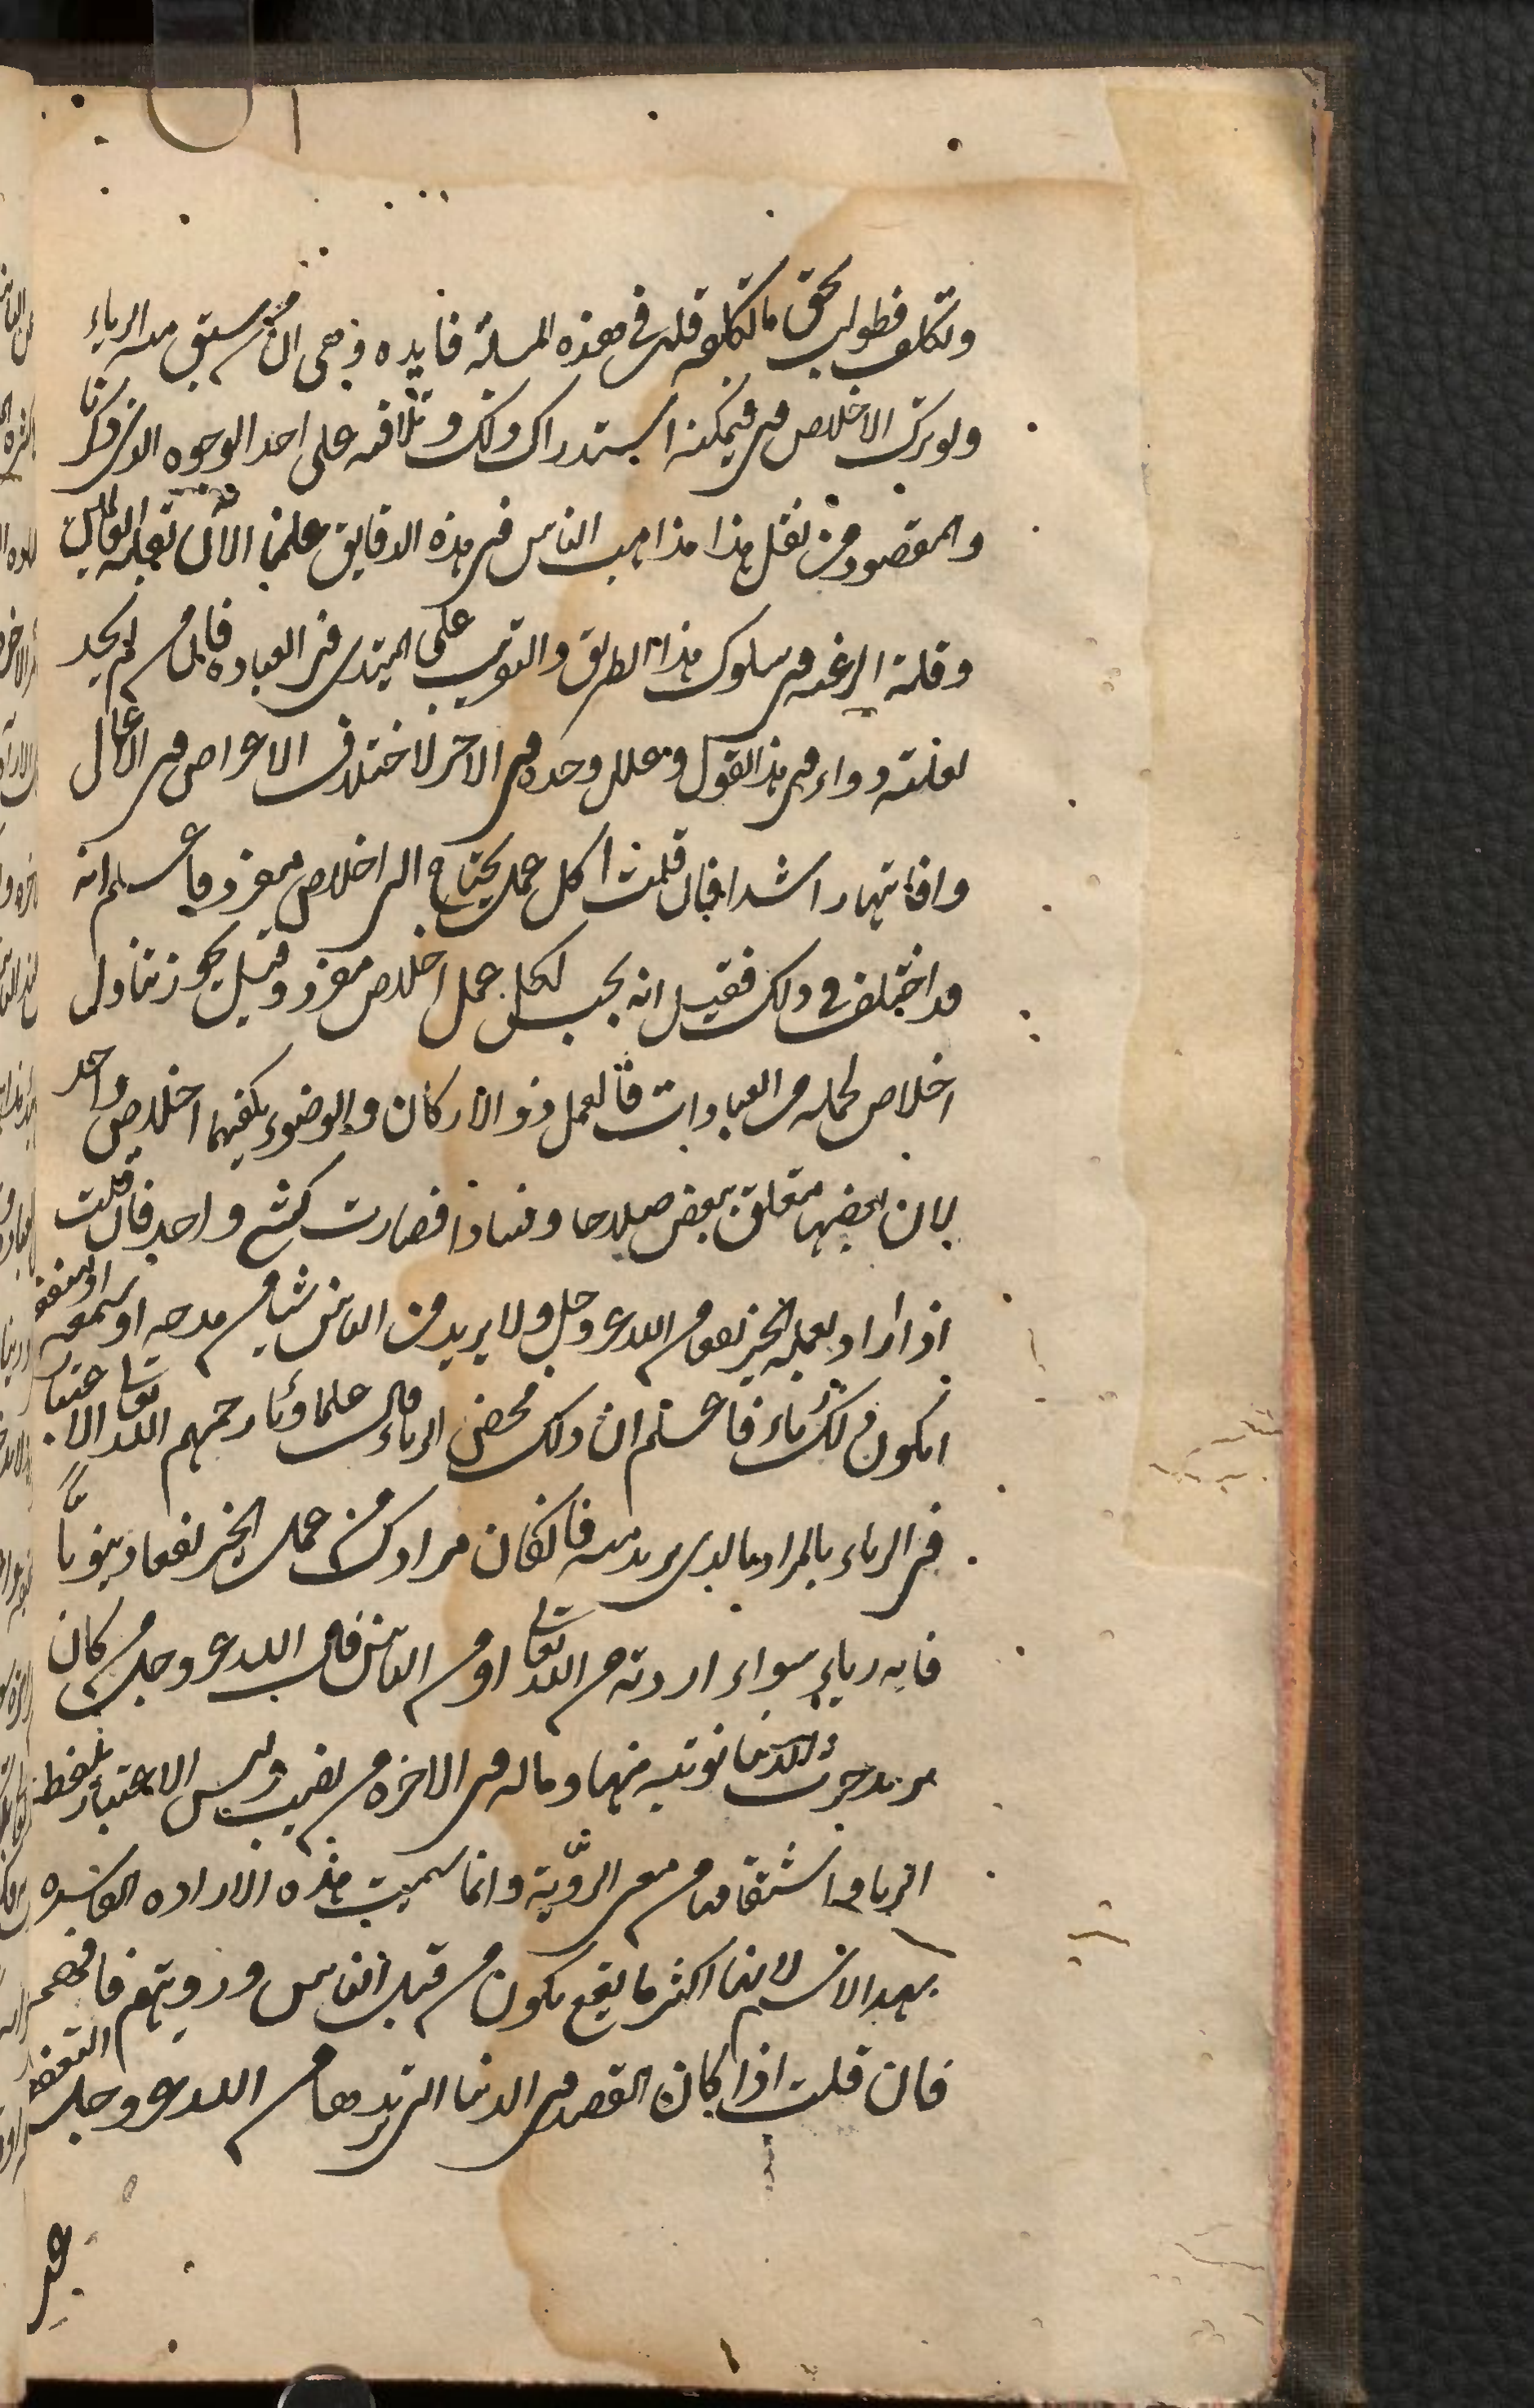 وتكلف فطول بحق ما تكلفه قلت في هذه المسلة فايده وهى ان من سبق منه الرياء
ولو ترك الاخلاص فى فيمكنه استدراك ذلك وتلافيه على احد الوجوه الذى ذكرنا
والمقصود من نقل هذا مذاهب الناس فى هذه الدقايق علمنا الآن
وقلة الرغبه فى سلوك هذا الطريق والتقريب على المبتدى فى العباده فان من لم يجد
لعلته دواء فى هذا القول وحده فى الاخر لاختلاف الاعراض فى الاعمال
وافاتها فان قلت اكل عمل يحتاج الى اخلاص مفرد فاعلم انه
قد اختلف فى ذلك فقيل انه يجب لكل عمل اخلاص مفرد وقيل يجوز تناول
اخلاص لجمله من العبادات فالعمل ذو الاركان والوضوء يكفيهما اخلاص واحد
لان بعضها متعلق ببعض صلاحا وفسادا فصارت كشىء واحد فان قلت
اذا اراد بعمله الخير نفعا من الله عز وجل ولا يريد من الناس شيا من مدحه او سمعه او منفعه
ايكون ذلك رياء فاعلم ان ذلك محض الرياء قال علماؤنا رحمهم الله تعالى الاعتبار
فى الرياء بالمراد لا بالذى يريد منه فان كان مرادك من عمل الخير نفعا دينويا
فانه رياء سواء اردته من الله تعالى او من الناس قال الله عز وجل من كان
يريد حرث الدنيا نوته منها وما له فى الاخره من نصيب وليس الاعتبار بلفظ
الريا واشتقاقه من معنى الرؤية وانما سميت هذه الاراده الفاسده
بهذا الاسم لانها اكثر ما يقع يكون من قبل الناس ورويتهم فافهم
فان قلت اذا كان القصد فى الدنيا التى يريدها من الله عز وجل التعفف